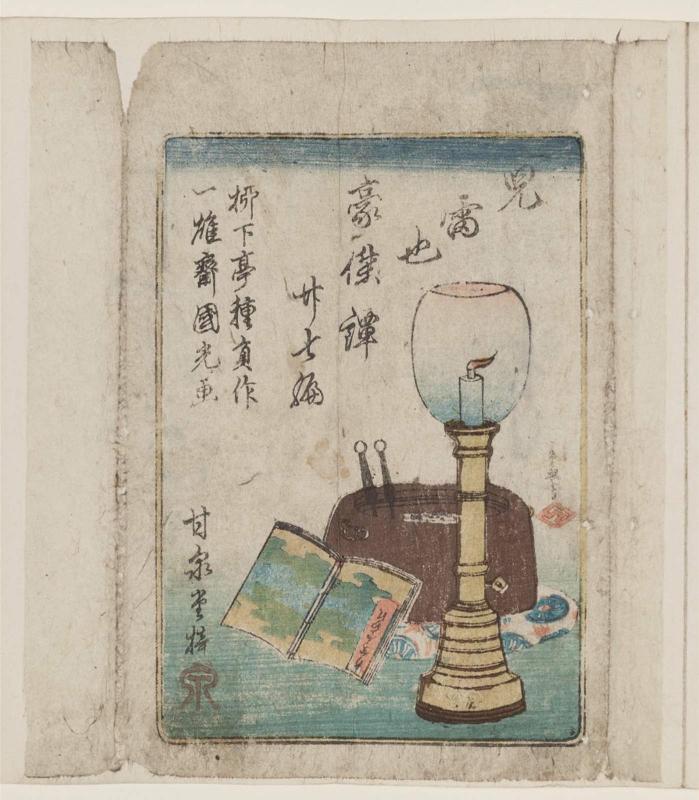 児雷也
豪傑譚
廿七編
柳下亭種員作
一雄齋國光画
甘泉堂梓
泉